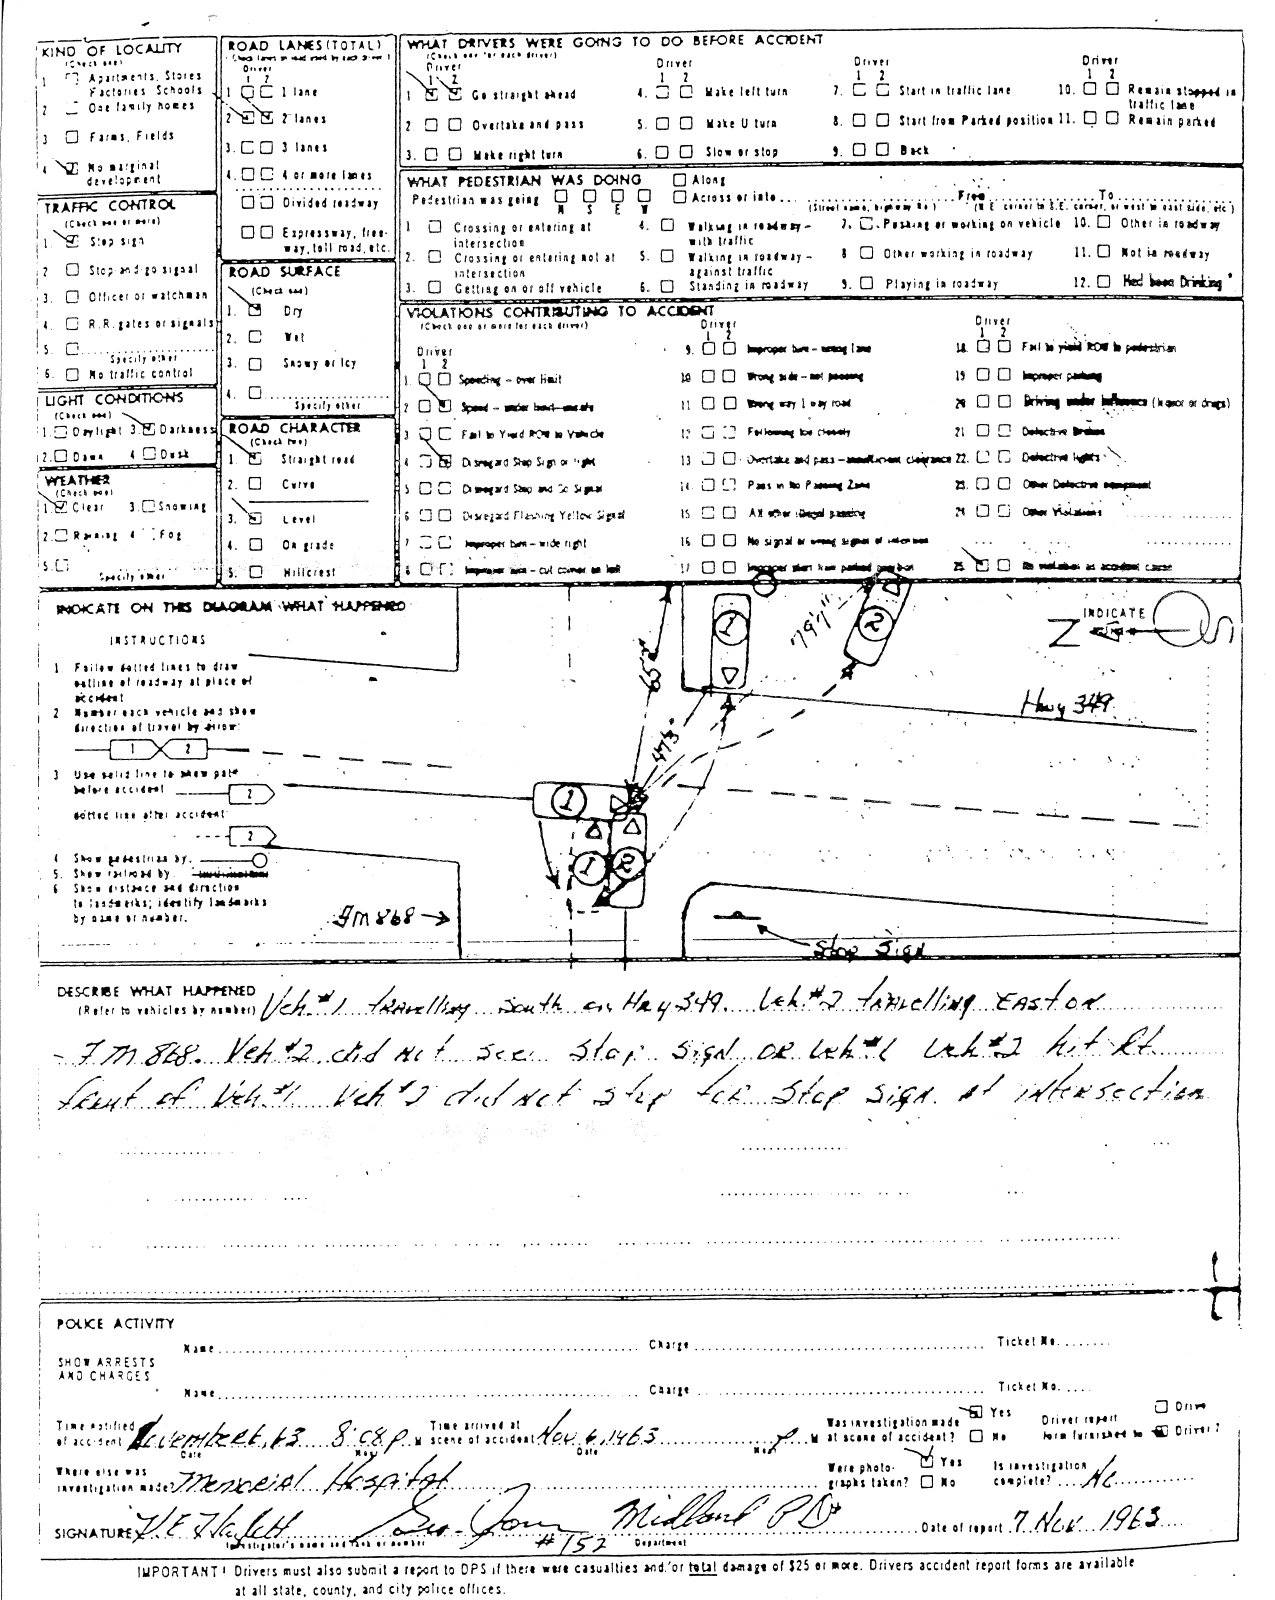 KIND OF LOCALITY
(Check one)
1 Apartments, Stores
Factories, Schools
2 One family homes
3 Farms, Fields
4 No marginal
development
TRAFFIC CONTROL
(Check one or more)
1. Stop sign
2 Stop and go signal
3. Officer or watchman
4. R.R. gates or signals
5.
Specify other
6. No traffic control
LIGHT CONDITIONS
(Check one)
1. Daylight 3. Darkness
2. Dawn 4 Dusk
WEATHER
(Check one)
1. Clear 3. Snowing
2. Raining 4 Fog
5.
Specify other
ROAD LANES (TOTAL)
(Check lanes on road used by each driver)
Driver
1 2
1 1 lane
2 2 lanes
3. 3 lanes
4. 4 or more lanes
Divided roadway
Expressway, free-
way, toll road, etc.
ROAD SURFACE
(Check one)
1. Dry
2. Wet
3. Snowy or Icy
4.
Specify other
ROAD CHARACTER
(Check two)
1. Straight road
2. Curve
3. Level
4. On grade
5. Hillcrest
WHAT DRIVERS WERE GOING TO DO BEFORE ACCIDENT
(Check one for each driver)
Driver
1 2
1 Go straight ahead
2 Overtake and pass
3. Make right turn
Driver
1 2
4. Make left turn
5. Make U turn
6. Slow or stop
Driver
1 2
7. Start in traffic lane
8. Start from Parked position
9. Back
Driver
1 2
10. Remain stopped in
traffic lane
11. Remain parked
WHAT PEDESTRIAN WAS DOING
Pedestrian was going
N S E W
Along
Across or into ... From ... To
(Street name, highway No.) (N.E. corner to S.E. corner, or west to east side, etc.)
1 Crossing or entering at
intersection
2. Crossing or entering not at
intersection
3. Getting on or off vehicle
4. Walking in roadway -
with traffic
5. Walking in roadway -
against traffic
6. Standing in roadway
7. Pushing or working on vehicle
8 Other working in roadway
9. Playing in roadway
10. Other in roadway
11. Not in roadway
12. Had been Drinking
VIOLATIONS CONTRIBUTING TO ACCIDENT
(Check one or more for each driver)
Driver
1 2
1. Speeding - over limit
2 Speed - under limit - unsafe
3 Fail to Yield ROW to Vehicle
4 Disregard Stop Sign or light
5 Disregard Stop and Go Signal
6 Disregard Flashing Yellow Signal
7 Improper turn - wide right
8 Improper turn - cut corner on left
Driver
1 2
9. Improper turn - wrong lane
10 Wrong side - not passing
11 Wrong way 1 way road
12 Following too closely
13 Overtake and pass - insufficient clearance
14 Pass in No Passing Zone
15 All other illegal passing
16 No signal or wrong signal of intention
17 Improper start from parked position
Driver
1 2
18 Fail to yield ROW to pedestrian
19 Improper parking
20 Driving under influence (liquor or drugs)
21 Defective Brakes
22. Defective lights
23. Other Defective equipment
24 Other Violations
25 No violation as accident cause
INDICATE ON THIS DIAGRAM WHAT HAPPENED
INSTRUCTIONS
1 Follow dotted lines to draw
outline of roadway at place of
accident
2 Number each vehicle and show
direction of travel by arrow:
1 2
3 Use solid line to show path
before accident 2
dotted line after accident
2
4 Show pedestrian by:
5. Show railroad by
6 Show distance and direction
to landmarks; identify landmarks
by name or number.
1
2
79'7"
65'
47'5"
INDICATE
N
Hwy 349
1
1 2
FM 868
Stop Sign
DESCRIBE WHAT HAPPENED Veh. #1 travelling South on Hwy 349. Veh. #2 travelling East on
(Refer to vehicles by number)
FM 868. Veh #2 did not see Stop Sign or Veh #1 Veh #2 hit Rt.
front of Veh #1 Veh #2 did not stop for Stop Sign at intersection
POLICE ACTIVITY
Name Charge Ticket No.
SHOW ARRESTS
AND CHARGES
Name Charge Ticket No.
Time notified
of accident November 6, 63 8:08 P M
Date Hour
Time arrived at
scene of accident Nov 6, 1963 P M
Date Hour
Was investigation made
at scene of accident? Yes No
Driver report
form furnished to Driver 2
Where else was
investigation made Memorial Hospital
Were photo-
graphs taken? Yes No
Is investigation
complete? No
SIGNATURE
Investigator's name and rank or number
#152
Midland PD
Department
Date of report 7 Nov 1963
IMPORTANT! Drivers must also submit a report to DPS if there were casualties and/or total damage of $25 or more. Drivers accident report forms are available
at all state, county, and city police offices.